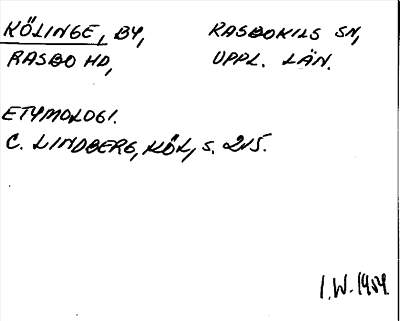 KÖLINGE, BY, RASBOKILS SN,
RASBO HD, UPPL. LÄN.
ETYMOLOGI.
C. LINDBERG, KÖL, S. 215.
I.W. 1959